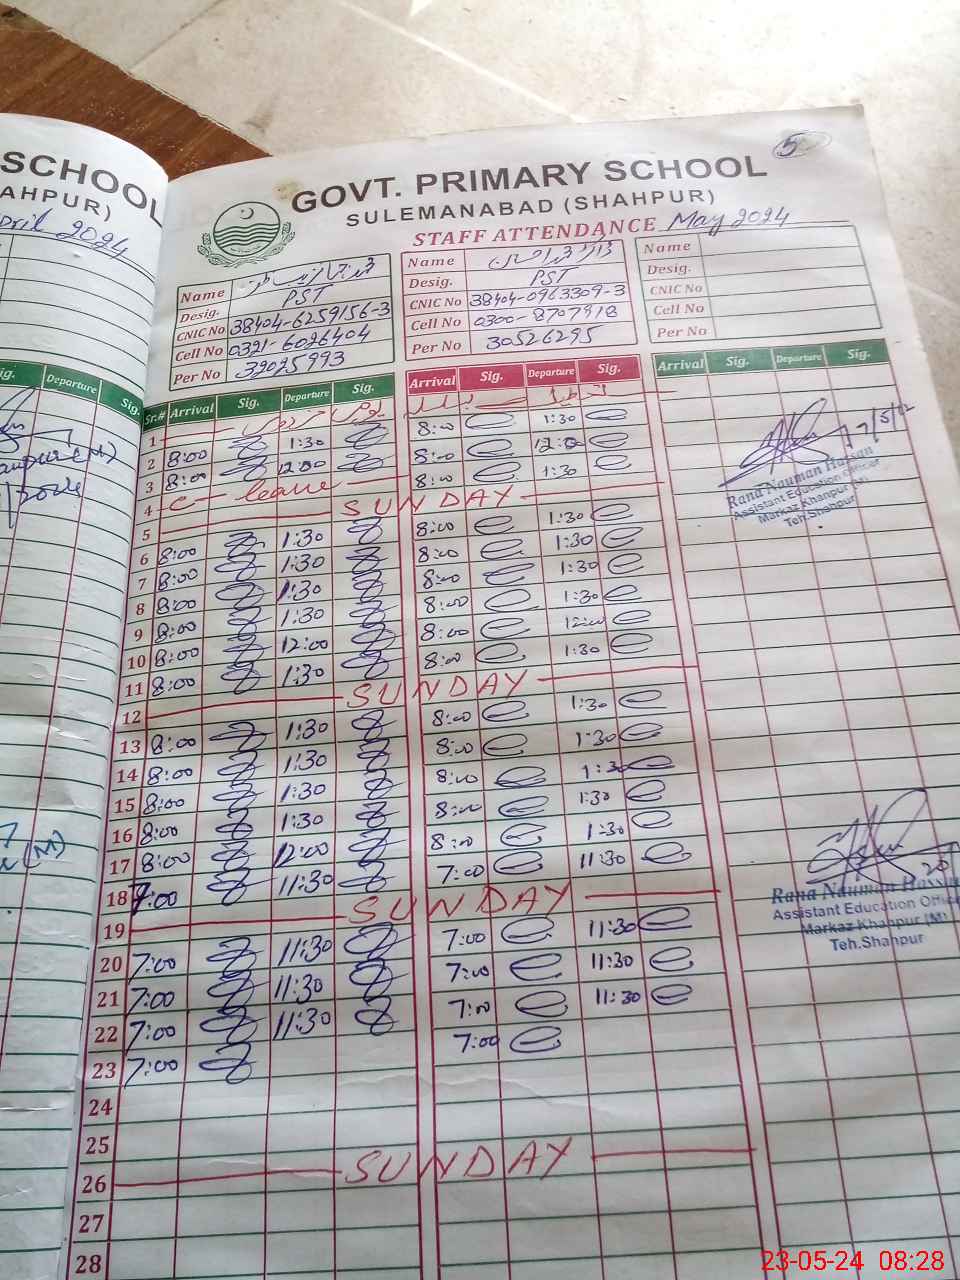 SCHOOL
AHPUR)
pril 2024
ig. Departure Sig.
5
GOVT. PRIMARY SCHOOL
SULEMANABAD (SHAHPUR)
STAFF ATTENDANCE May 2024
Name Name Name
Desig. PST Desig. PST Desig.
CNIC No 38404-6259156-3 CNIC No 38404-0963309-3 CNIC No
Cell No 0321-6026404 Cell No 0300-8707918 Cell No
Per No 32025993 Per No 30526295 Per No
Sr.# Arrival Sig. Departure Sig. Arrival Sig. Departure Sig. Arrival Sig. Departure Sig.
1
2 8:00 1:30 8:00 1:30
3 8:00 12:00 8:00 12:00
4 C- leave 8:00 1:30
5 SUNDAY
6 8:00 1:30 8:00 1:30
7 8:00 1:30 8:00 1:30
8 8:00 1:30 8:00 1:30
9 8:00 1:30 8:00 1:30
10 8:00 12:00 8:00 12:00
11 8:00 1:30 8:00 1:30
12 SUNDAY
13 8:00 1:30 8:00 1:30
14 8:00 1:30 8:00 1:30
15 8:00 1:30 8:00 1:30
16 8:00 1:30 8:00 1:30
17 8:00 12:00 8:00 1:30
18 7:00 11:30 7:00 11:30
19 SUNDAY
20 7:00 11:30 7:00 11:30
21 7:00 11:30 7:00 11:30
22 7:00 11:30 7:00 11:30
23 7:00 7:00
24
25
26 SUNDAY
27
28
Rana Nauman Hassan
Assistant Education Officer
Markaz Khanpur (M)
Teh.Shahpur
Rana Nauman Hassan
Assistant Education Office
Markaz Khanpur (M)
Teh.Shahpur
23-05-24 08:28